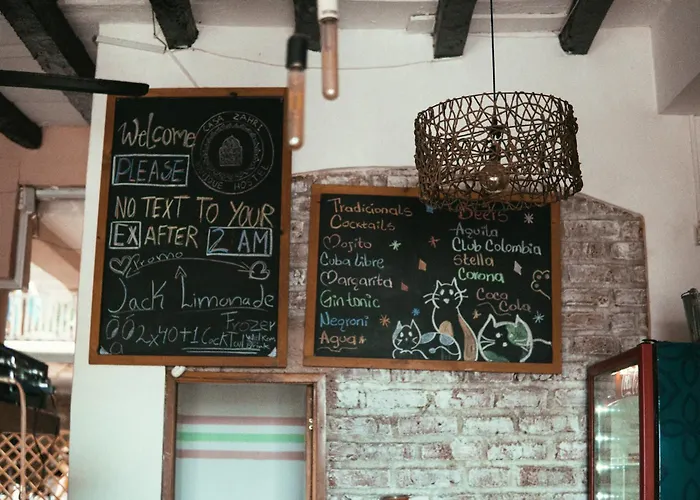 Welcome
CASA ZAHRI
PLEASE
NO TEXT TO YOUR
EX AFTER 2 AM
Promo
Jack Limonade
Frozen
2x40+1 Cocktail
Tradicionals
Cocktails
Mojito
Cuba libre
Margarita
Gin tonic
Negroni
Agua
Beers
Aguila
Club Colombia
Stella
Corona
Coca
Cola